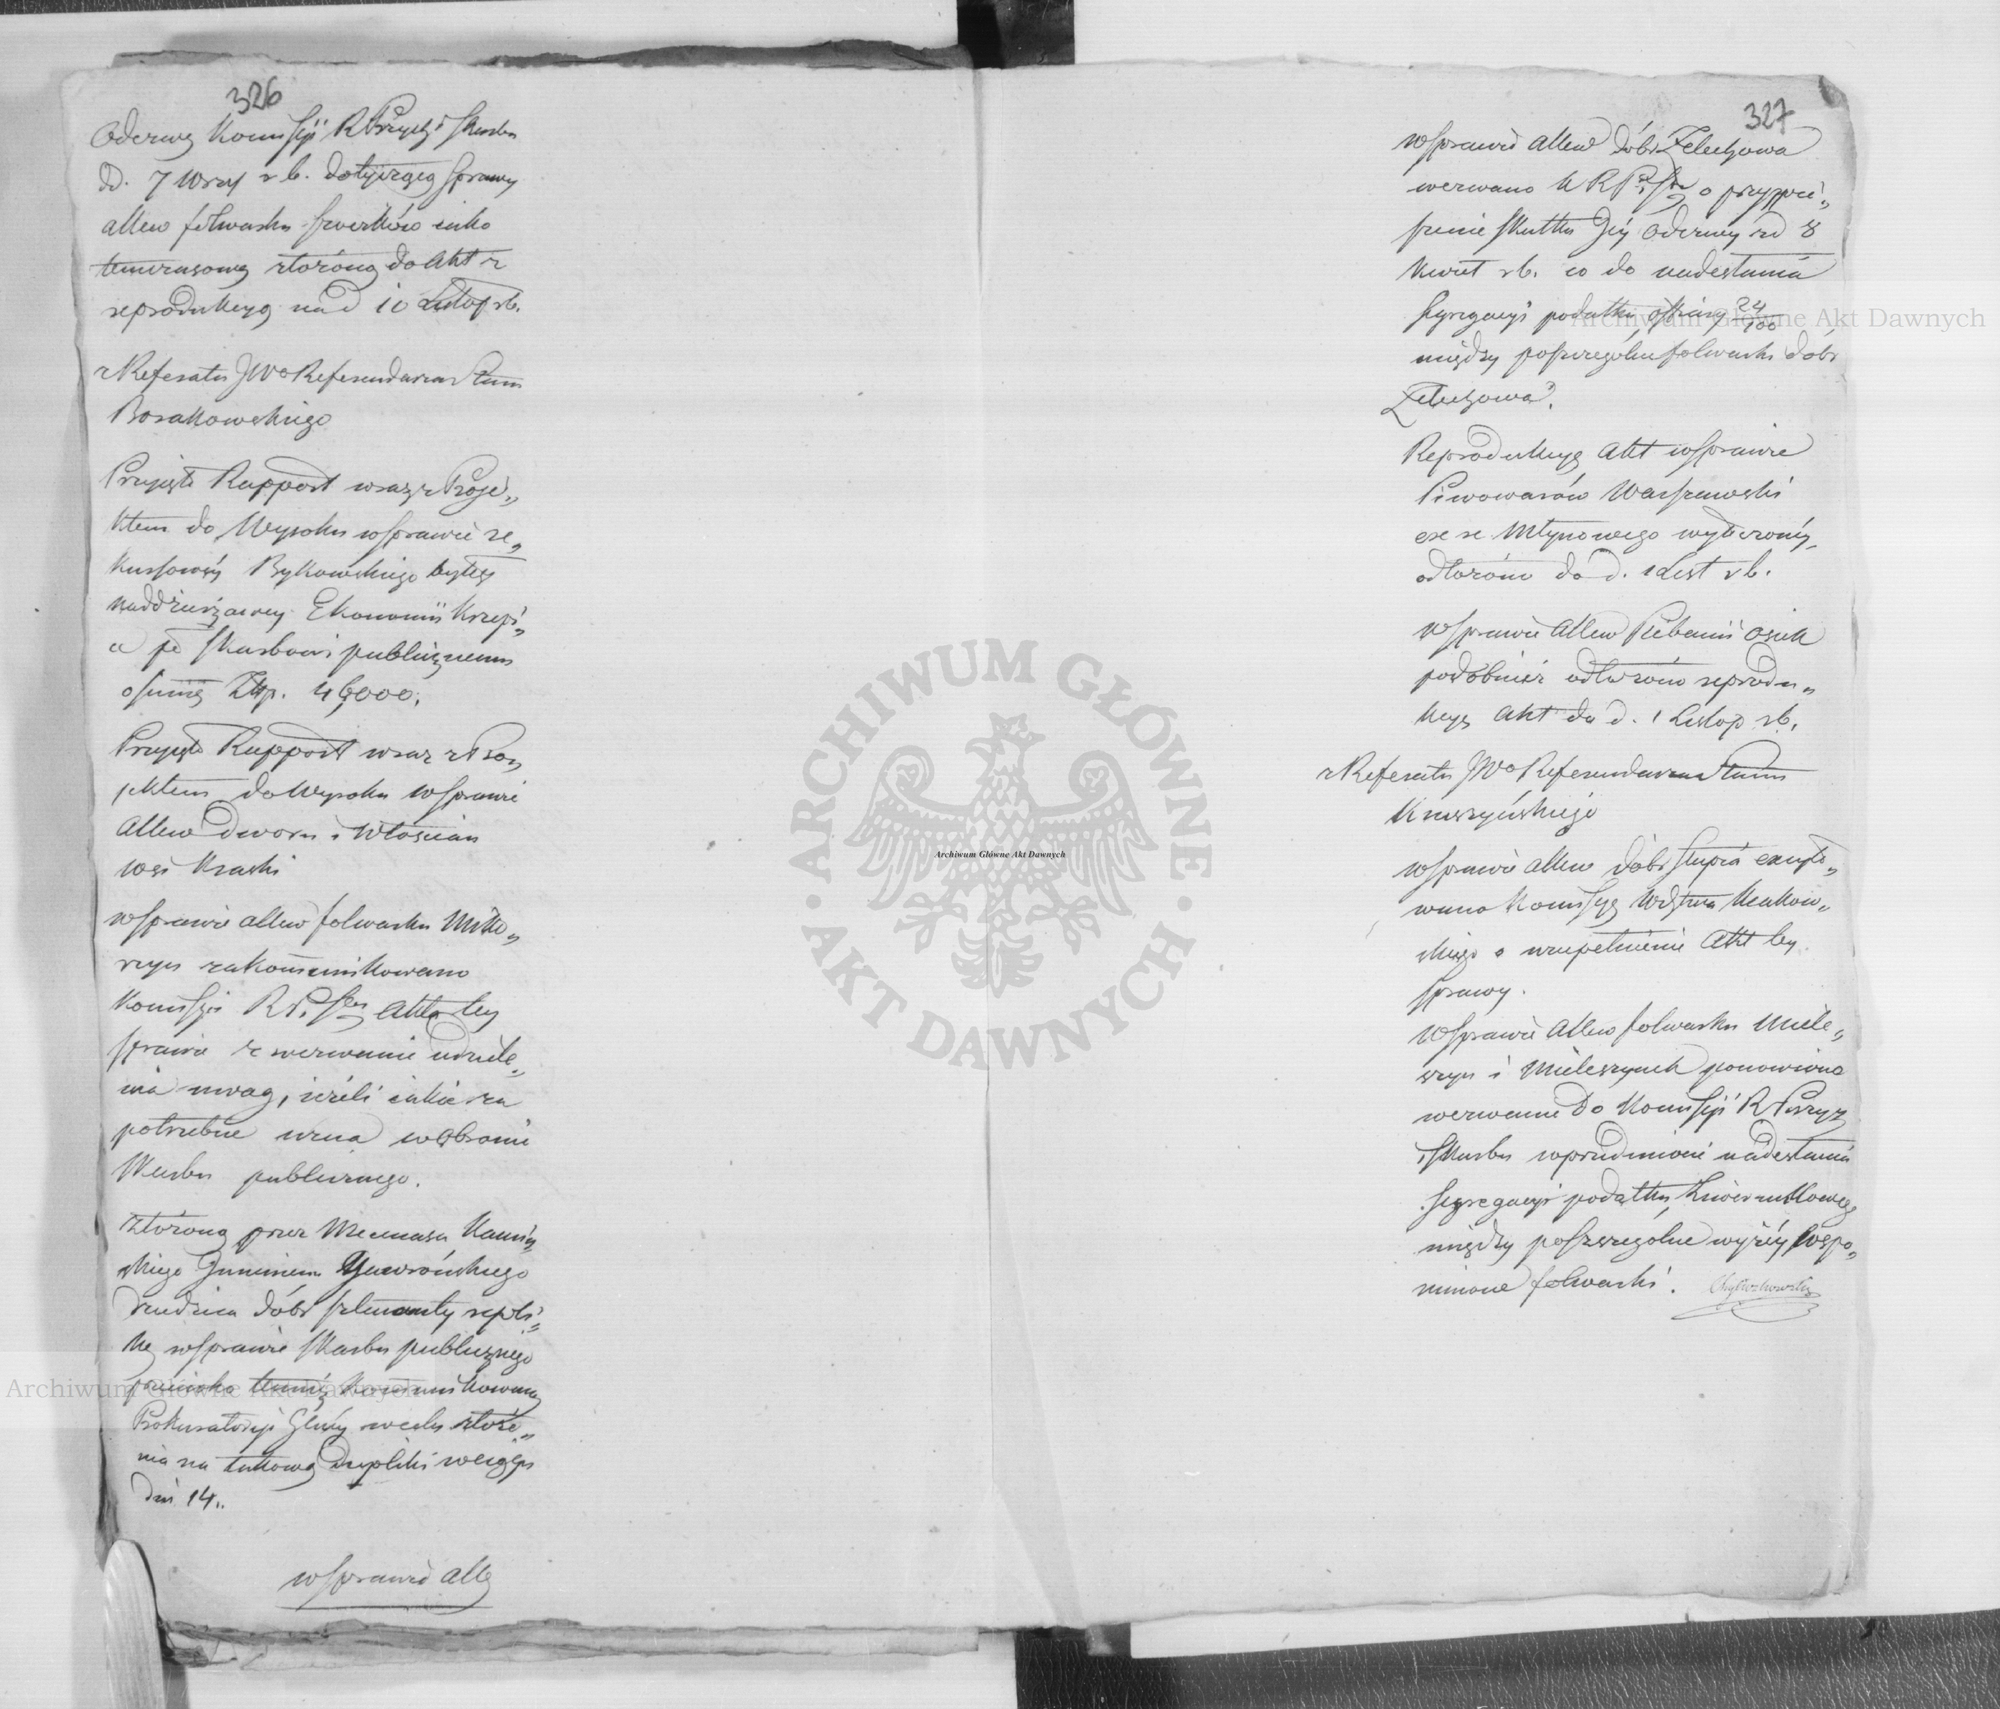 326
Odezwę Kommissji R Przych i Skarbu
dd. 7 Wrz r b. dotyczącą sprawy
allew folwarku
tymczasową złożono do Akt z
reprodukcyą na d 10 Listop rb.
z Referatu JWo Referendarza Stanu
Borakowskiego
Przyjęto Rapport wraz z Proje„
ktem do Wyroku w sprawie re„
kursowéj Bykowskiego byłego
naddzierżawcy Ekonomii Krzepi„
c pko Skarbowi publicznemu
o summę Złp. 46,000.
Przyjęto Rapport wraz z Pro„
jektem do Wyroku w sprawie
allew dworu i Włościan
wsi Kraski
w sprawie allew folwarku Miko„
rzyn zakommunikowano
Kommissji R P. i Sbu Akta tey
sprawie z wezwaniem udziele„
nia uwag, jeżeli jakie za
potrzebne uzna w obronie
Skarbu publicznego.
Złożoną przez Mecenasa Kamiń„
skiego Imieniem Jaworóńskiego
dziedzica dóbr repli„
kę w sprawie Skarbu publicznego
przeciwko temuż kommunikowano
Prokuratoryi Glnéy w celu złoże„
nia na takową dupliki w ciągu
dni 14„
w sprawie alle
327
w sprawie allew dóbr Żelechowa
wezwano K R P. i Sbu o przyspie„
szenie skutku Jéj Odezwy zd 8
Kwiet rb. co do nadesłania
segregacyi podatku ofiary 24/100
między poszczególne folwarki dóbr
Żelechowa.
Reprodukcyę Akt w sprawie
Piwowarów Warszawski
młynowego wytoczonéj,
odłożono do d. 1 List r b.
w sprawie allew Plebanii Osiek
podobnież odłożono reprodu„
kcyę Akt do d. 1 Listop rb.
z Referatu JWo Referendarza Stanu
Kruszyńskiego
w sprawie allew dóbr Słupia excyto„
wano Kommissyę Wdztwa Krakow„
skiego o uzupełnienie Akt tey
sprawy.
w sprawie allew folwarku Miele„
szyn i Mieleszynek ponowiono
wezwanie do Kommissji R Przych
i Skarbu w przedmiocie nadesłania
segregacyi podatku Liwerunkowego
między poszczególne wyżéy wspo„
mnione folwarki.
ARCHIWUM GŁÓWNE
AKT DAWNYCH
Archiwum Główne Akt Dawnych
Archiwum Główne Akt Dawnych
Archiwum Główne Akt Dawnych